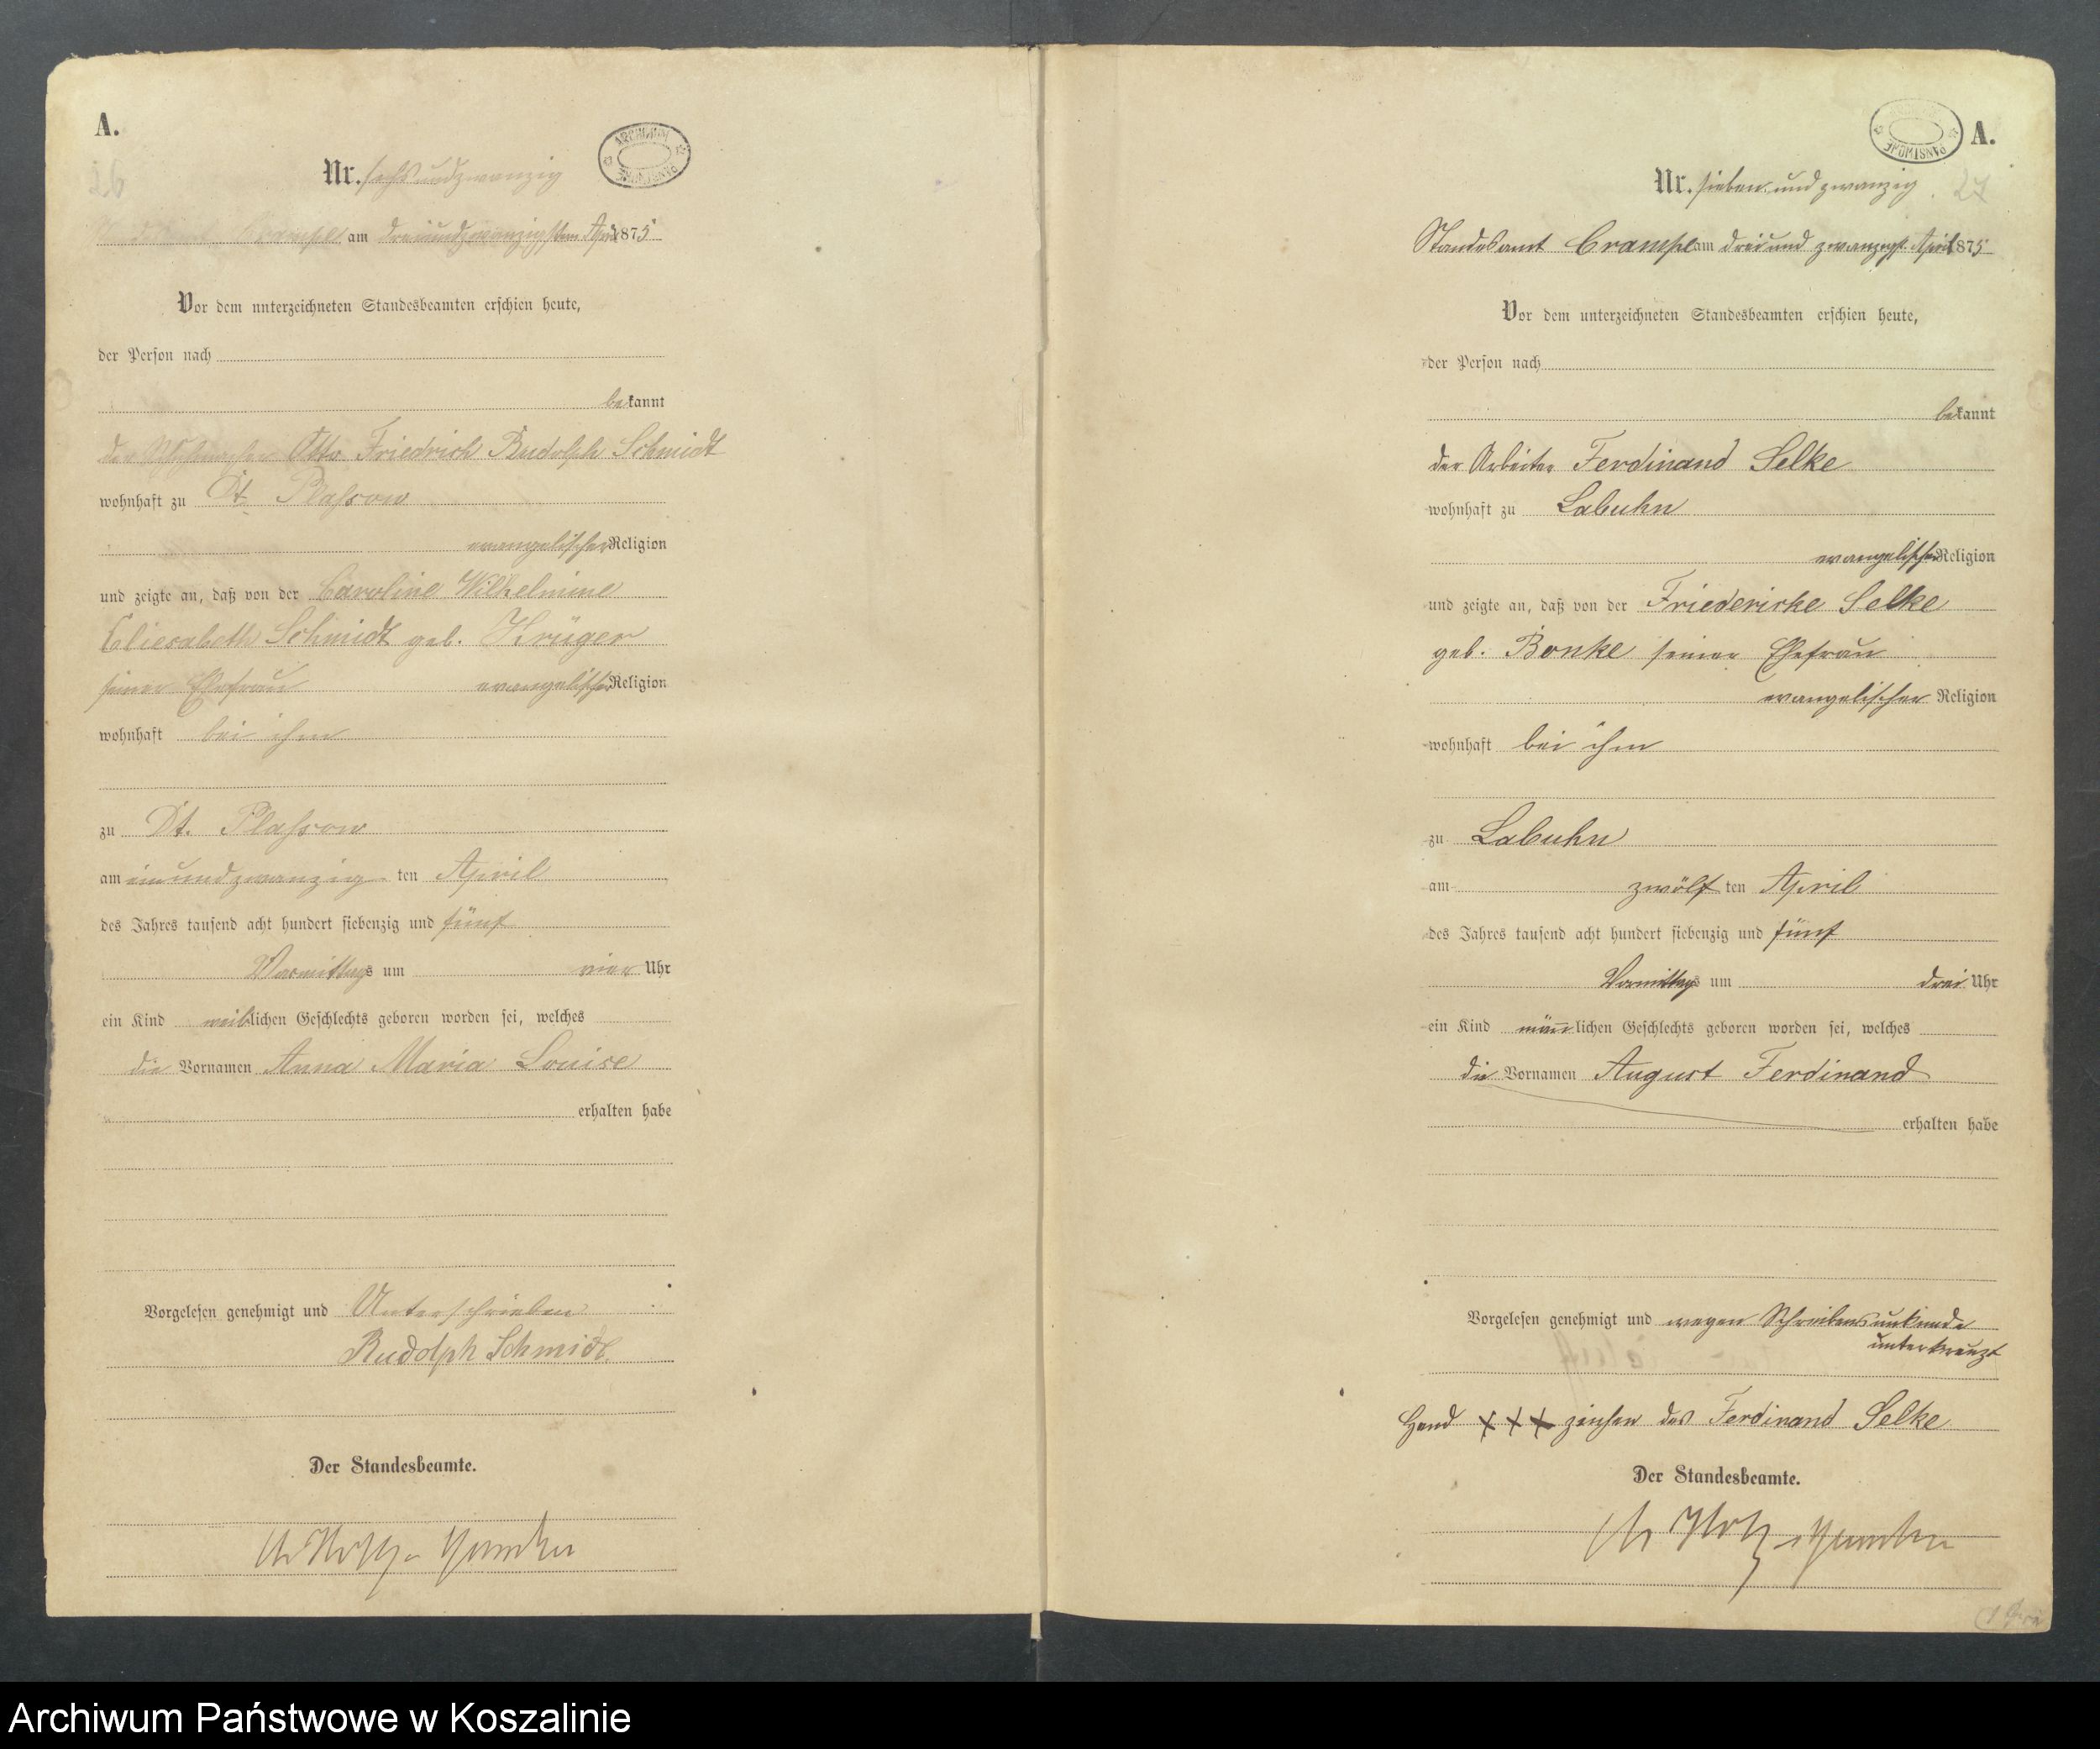 A.
ARCHIWUM PAŃSTWOWE
Nr. sechs und zwanzig
Crampe am dreiundzwanzigsten April 1875
Vor dem unterzeichneten Standesbeamten erschien heute,
der Person nach
bekannt
der Otto Friedrich Rudolph Schmidt
wohnhaft zu Dt. Plassow
evangelischer Religion
und zeigte an, daß von der Caroline Wilhelmine
Eliesabeth Schmidt geb. Krüger
seiner Ehefrau evangelischer Religion
wohnhaft bei ihm
zu Dt. Plassow
am einundzwanzig ten April
des Jahres tausend acht hundert siebenzig und fünf
Vormittags um vier Uhr
ein Kind weiblichen Geschlechts geboren worden sei, welches
die Vornamen Anna Maria Louise
erhalten habe
Vorgelesen genehmigt und Unterschrieben
Rudolph Schmidt.
Der Standesbeamte.
PAŃSTWOWE
A.
Nr. sieben und zwanzig. 27
Standesamt Crampe am drei und zwanzigst. April 1875
Vor dem unterzeichneten Standesbeamten erschien heute,
der Person nach
bekannt
der Arbeiter Ferdinand Selke
wohnhaft zu Labuhn
evangelischer Religion
und zeigte an, daß von der Friedericke Selke
geb. Bonke seiner Ehefrau
evangelischer Religion
wohnhaft bei ihm
zu Labuhn
am zwölf ten April
des Jahres tausend acht hundert siebenzig und fünf
Vormittags um drei Uhr
ein Kind männlichen Geschlechts geboren worden sei, welches
die Vornamen August Ferdinand
erhalten habe
Vorgelesen genehmigt und wegen Schreibensunkunde
unterkreuzt
Hand +++ zeichen des Ferdinand Selke
Der Standesbeamte.
Archiwum Państwowe w Koszalinie